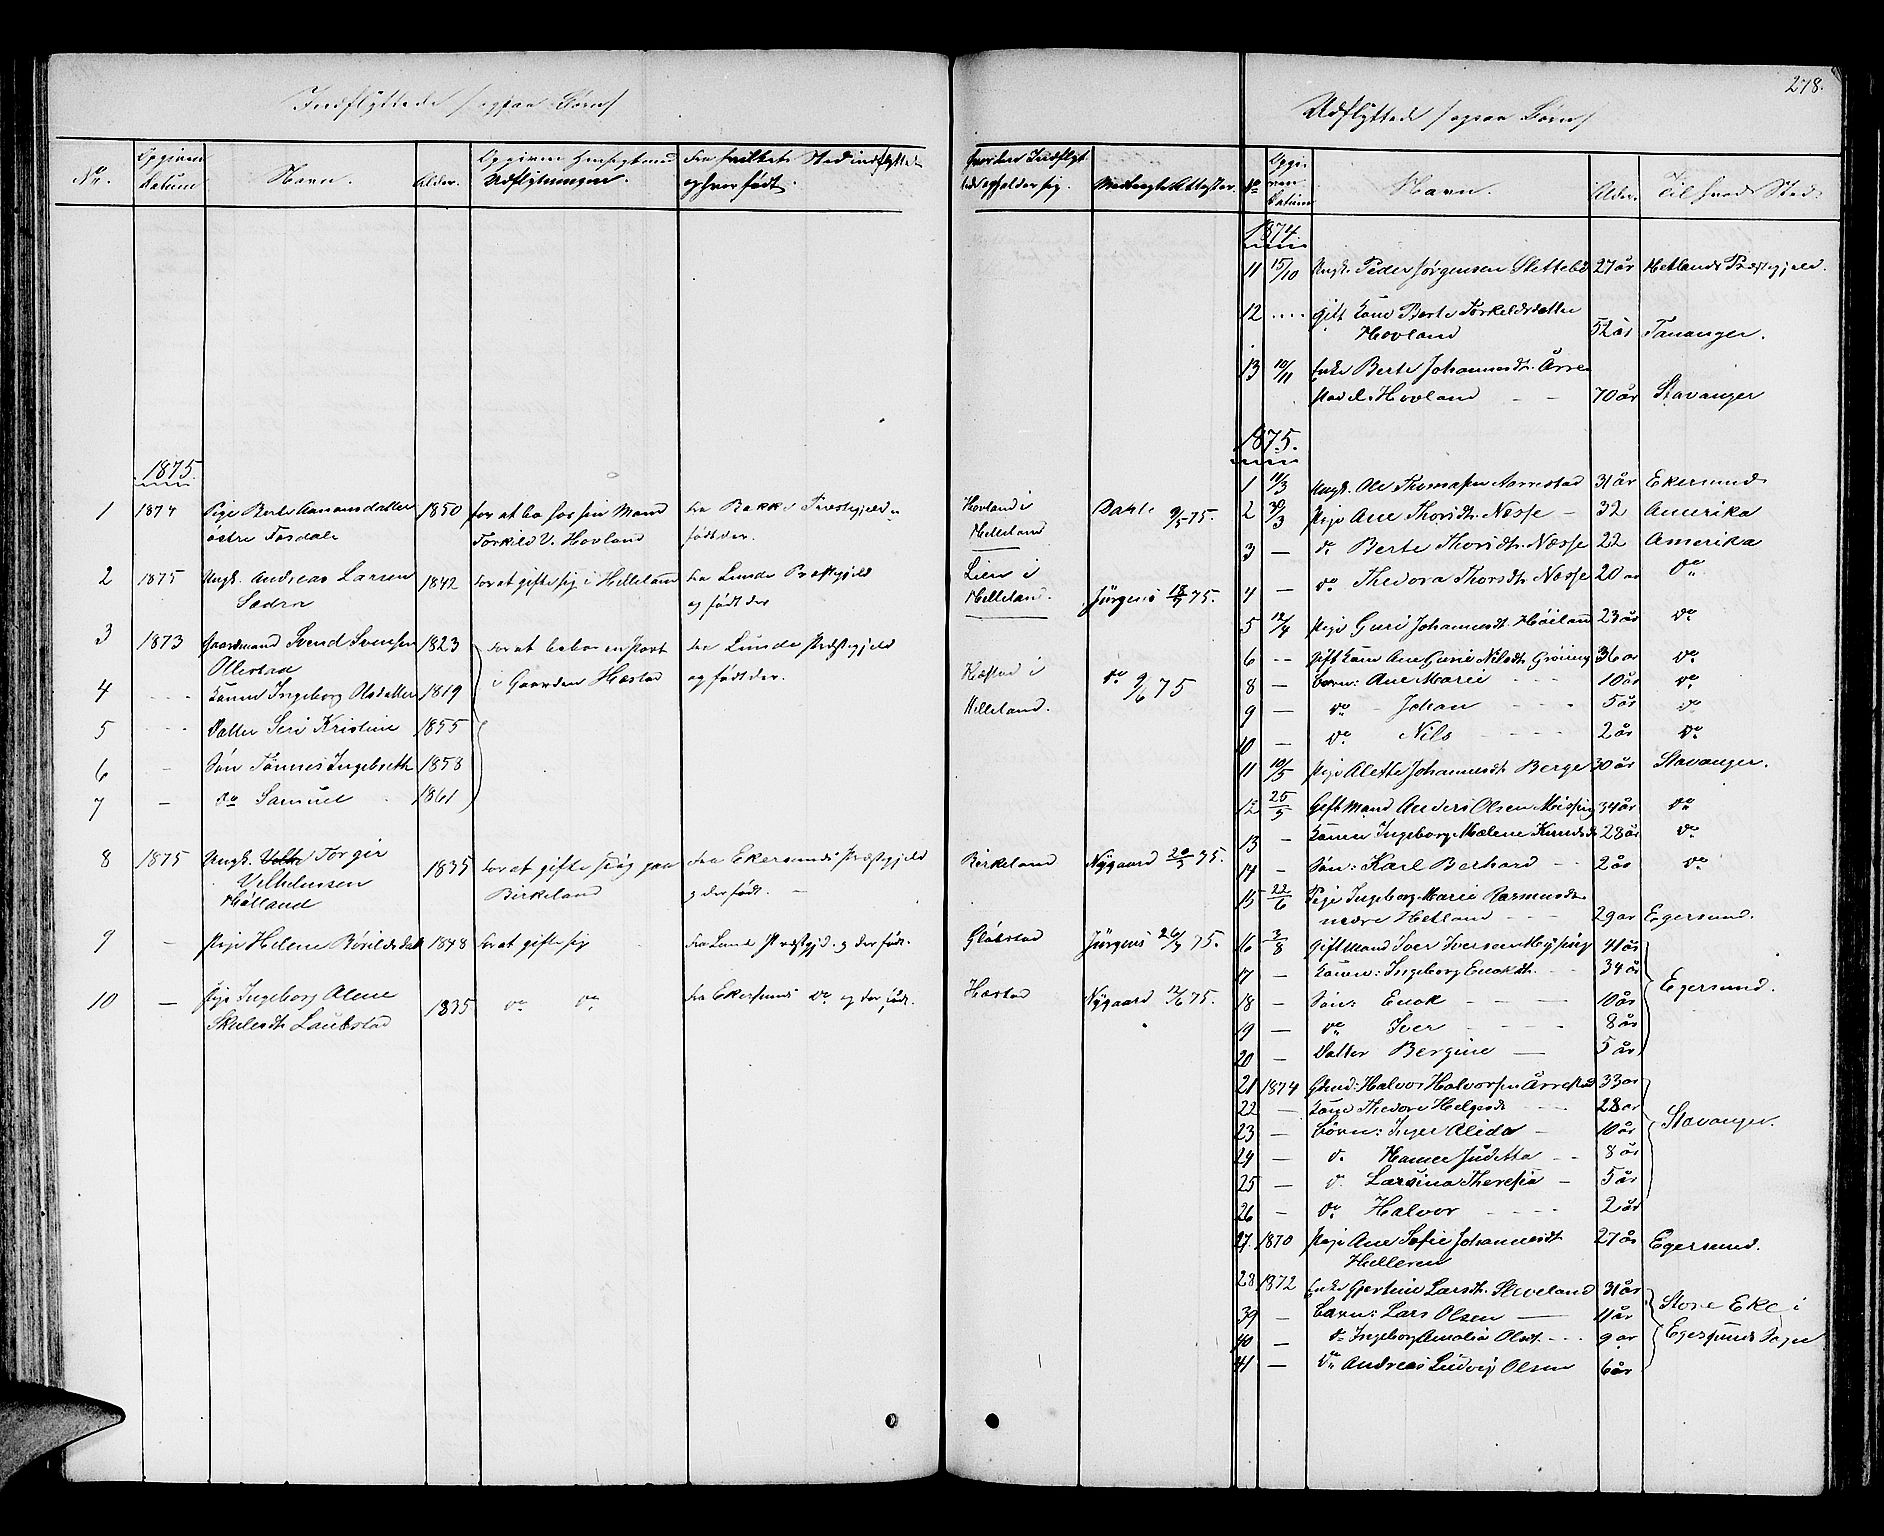 278.
Indflyttede /ogsaa Børn/
No.
Opgiven Datum
Navn.
Alder.
Opgiven Hensigt med Udflytningen.
Fra hvilket Sted indflyttet og hvor født.
hvorhen Indflyt
og opholder sig.
Medbragte Attester.
1875.
1 1874 Pige Berte Aamonsdatter 1850 for at bo hos sin Mand Fra Bakke Præstegjeld Hovland i Dahl 9/5 75.
østre Tørdal Torkild V. Hovland født der. Helleland
2 1875 Ungk. Andreas Larsen 1842 For at gifte sig i Helleland Fra Lunde Præstegjeld Lien i Jürgens 18/7 75.
og født der Helleland.
3 1873 Gaardmand Svend Svensen 1823 For at bebo en part Fra Lunde Præstegjeld Hæstad i do 9/6 75
Ollestad i Gaarden Hæstad og født der. Helleland.
4 - - - Konen Ingeborg Olsdatter 1819
5 - - - Datter Seri Kristine 1855
6 - Søn Tønnes Ingebreth 1858
7 - do Samuel 1861
8 1875 Ungk. Torgir 1835 For at gifte sig paa Fra Ekersunds Præstegjeld Birkeland Nygaard 20/3 75.
Vilhelmsen Birkeland og der født.
Hølland
9 - Pige Helene Bøvilsdatt 1848 For at gifte sig Fra Lunde Præstegjd. og der født. Gløbstad Jürgens 26/7 75.
10 - Pige Ingeborg Olene 1835 do do Fra Ekersunds do og der født. Hæstad Nygaard 12/6 75.
Skulesdtr. Laubstad
Udflyttede /ogsaa Børn/
No
Opgiven Datum
Navn.
Alder.
Til hvad Sted.
1874.
11 15/10 Ungk. Peder Jørgensen Slettebø 27 år Hetlands Præstegjeld.
12 .... gift Kone Berte Torkildsdatter
Hovland 52 år Tananger.
13 10/11 Enke Berte Johannesdtr. Årre
stad Hovland - - 70 år Stavanger
1875.
1 11/3 Ungk. Ole Thomassen Aarrestad 31 år Ekersund
2 30/3 Pige Ane Thorsdtr. Næsse - 32 Amerika
3 - do Berte Thorsdtr. Næsse 22 Amerika
4 - do Thedora Thorsdtr. Næsse 20 år do
5 12/4 Pige Guri Johannesdt. Høiland 23 år do
6 - - Gift Kone Ane Gurie Nilsdt. Grøning 36 år do
8 - Børn: Ane Marie - - - 10 år do
9 - do - Johan - - - 5 år do
10 - do Nils - - - - 2 år do
11 10/5 Pige Alette Johannesdt. Berge 30 år Stavanger.
12 25/5 Gift Mand Anders Olsen Møising 34 år do
13 - Konen Ingeborg Malene Knudsdt 28 år do
14 - Søn: Karl Berhard - - 2 år do
15 22/6 Pige Ingeborg Marie Rasmusdtr.
nedre Hetland - - - 29 år Egersund.
16 3/8 Gift Mand Iver Iversen Møysing 41 år
17 - Konen: Ingeborg Enokdt. - - - 34 år Egersund.
18 - Søn: Enok - - - - 10 år
19 - do Iver - - - - 8 år
20 - Datter Bergine - 5 år
21 1874 Gbrd: Halvor Halvorsen Årrestad 33 år
22 - Kone Thedore Helgesdt - - - 28 år Stavanger.
23 - Børn: Inger Alida - 10 år
24 - do Hanne Judetta - - 8 år
25 - do Larsina Theresia - 5 år
26 - do Halvor - - - - 2 år
27. 1870 Pige Ane Sofie Johannesdt 27 år Egersund.
Helleren
28 1872 Enke Gjertine Larsdt. Sleveland 31 år Store Eke i
39 - Børn: Lars Olsen - 11 år Egersunds Sogn
40 - do Ingeborg Amalia Olsdt. - - - 9 år
41 - do Andreas Ludvig Olsen 6 år